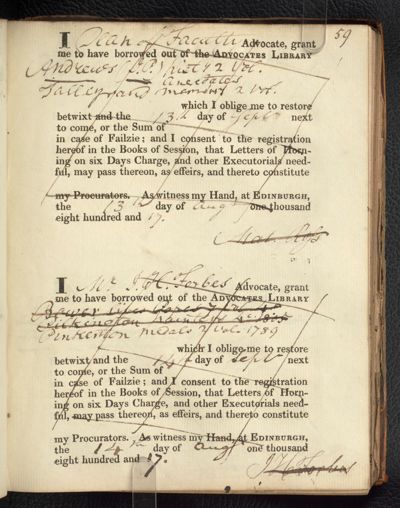 59
I Dean of Faculty Advocate, grant
me to have borrowed out of the ADVOCATES LIBRARY
Andrews (J.P.) hist 42 Vol.
anecdotes
Talleyrand memoirs 2 Vol.
which I oblige me to restore
betwixt and the 13th day of Septr next
to come, or the Sum of
in case of Failzie; and I consent to the registration
hereof in the Books of Session, that Letters of Horn-
ing on six Days Charge, and other Executorials need-
ful, may pass thereon, as effeirs, and thereto constitute
my Procurators. As witness my Hand, at EDINBURGH,
the 13th day of augt one thousand
eight hundred and 17.
Mat. Ross
I Mr. J. H. Forbes Advocate, grant
me to have borrowed out of the ADVOCATES LIBRARY
Bower lives Popes 7 Vol. 4o
Pilkington Painters
Pinkerton medals 2 Vol. 1789
which I oblige me to restore
betwixt and the 14th day of Septr next
to come, or the Sum of
in case of Failzie; and I consent to the registration
hereof in the Books of Session, that Letters of Horn-
ing on six Days Charge, and other Executorials need-
ful, may pass thereon, as effeirs, and thereto constitute
my Procurators. As witness my Hand, at EDINBURGH,
the 14th day of augt one thousand
eight hundred and 17.
J H Forbes